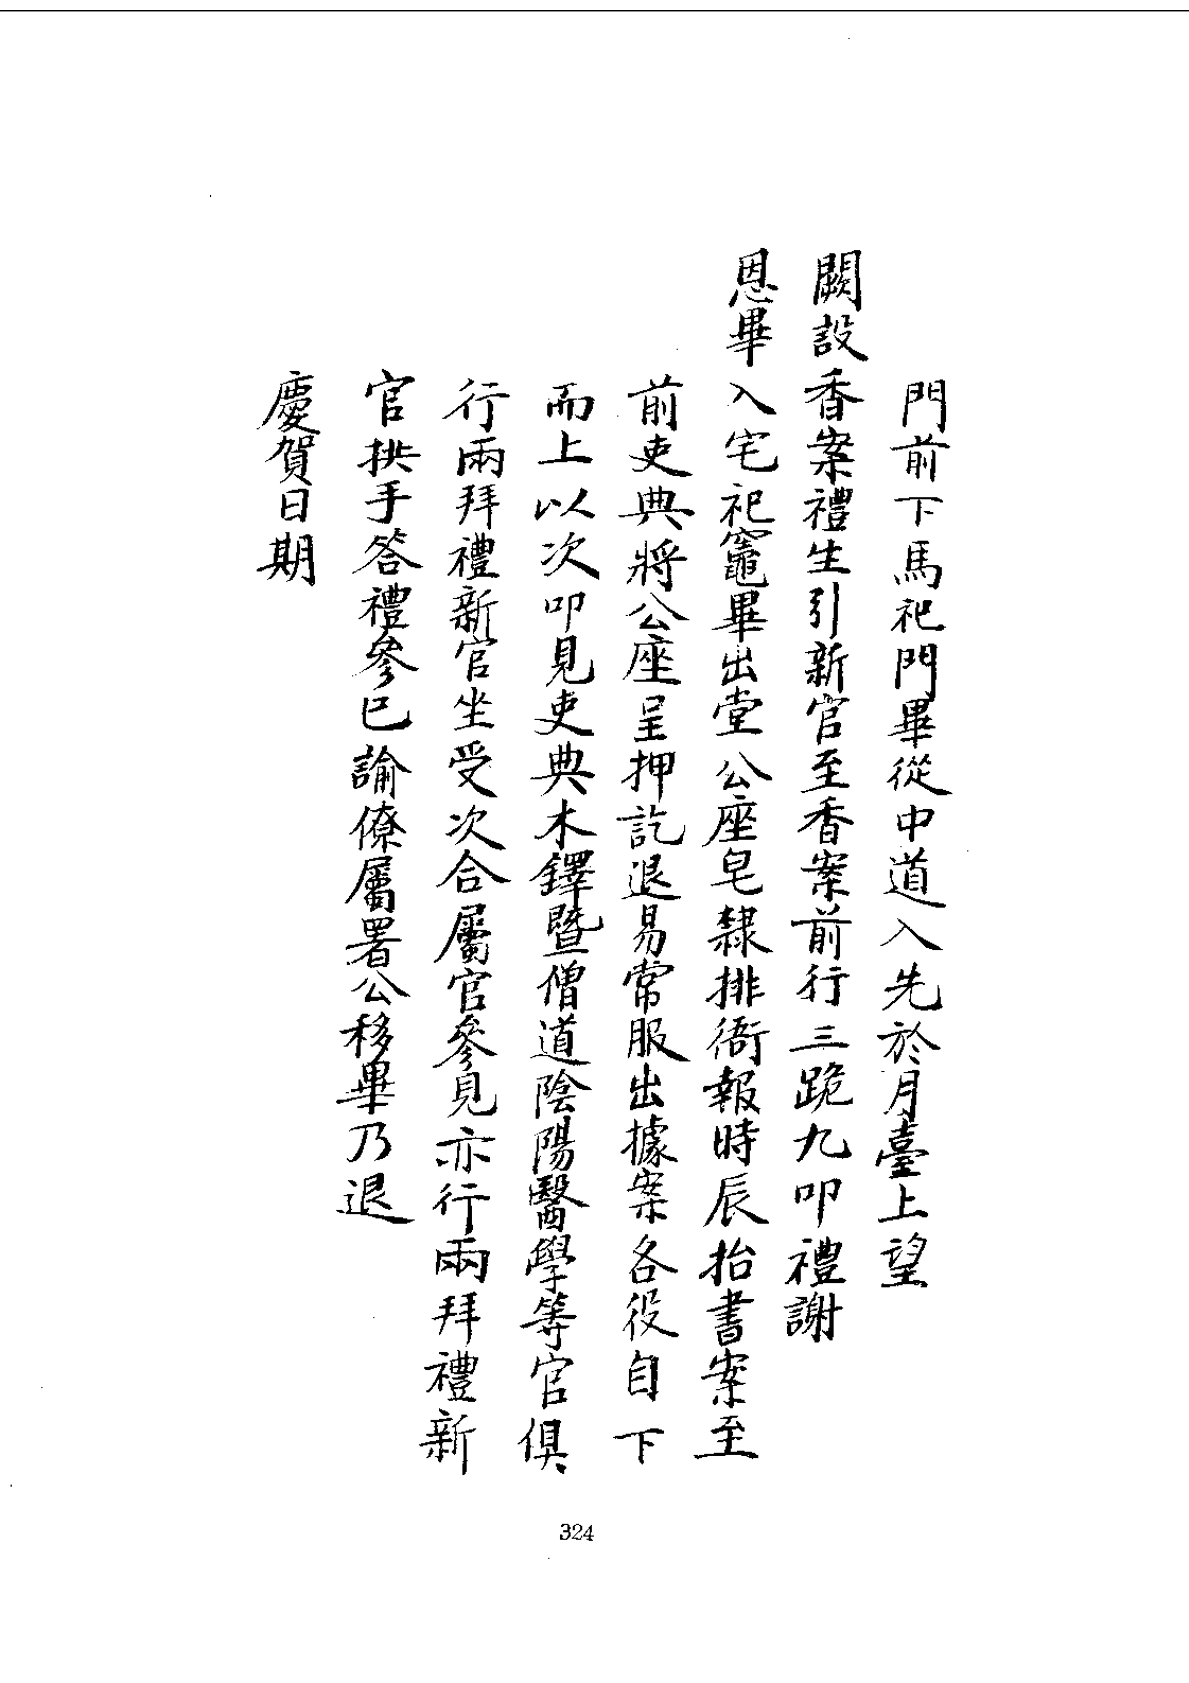 門前下馬祀門畢從中道入先於月臺上望
闕設香案禮生引新官至香案前行三跪九叩禮謝
恩畢入宅祀竈畢出堂公座皂隸排衙報時辰抬書案至
前吏典將公座呈押訖退易常服出據案各役自下
而上以次叩見吏典木鐸暨僧道陰陽醫學等官俱
行兩拜禮新官坐受次合屬官參見亦行兩拜禮新
官拱手答禮參已諭僚屬署公移畢乃退
慶賀日期
324